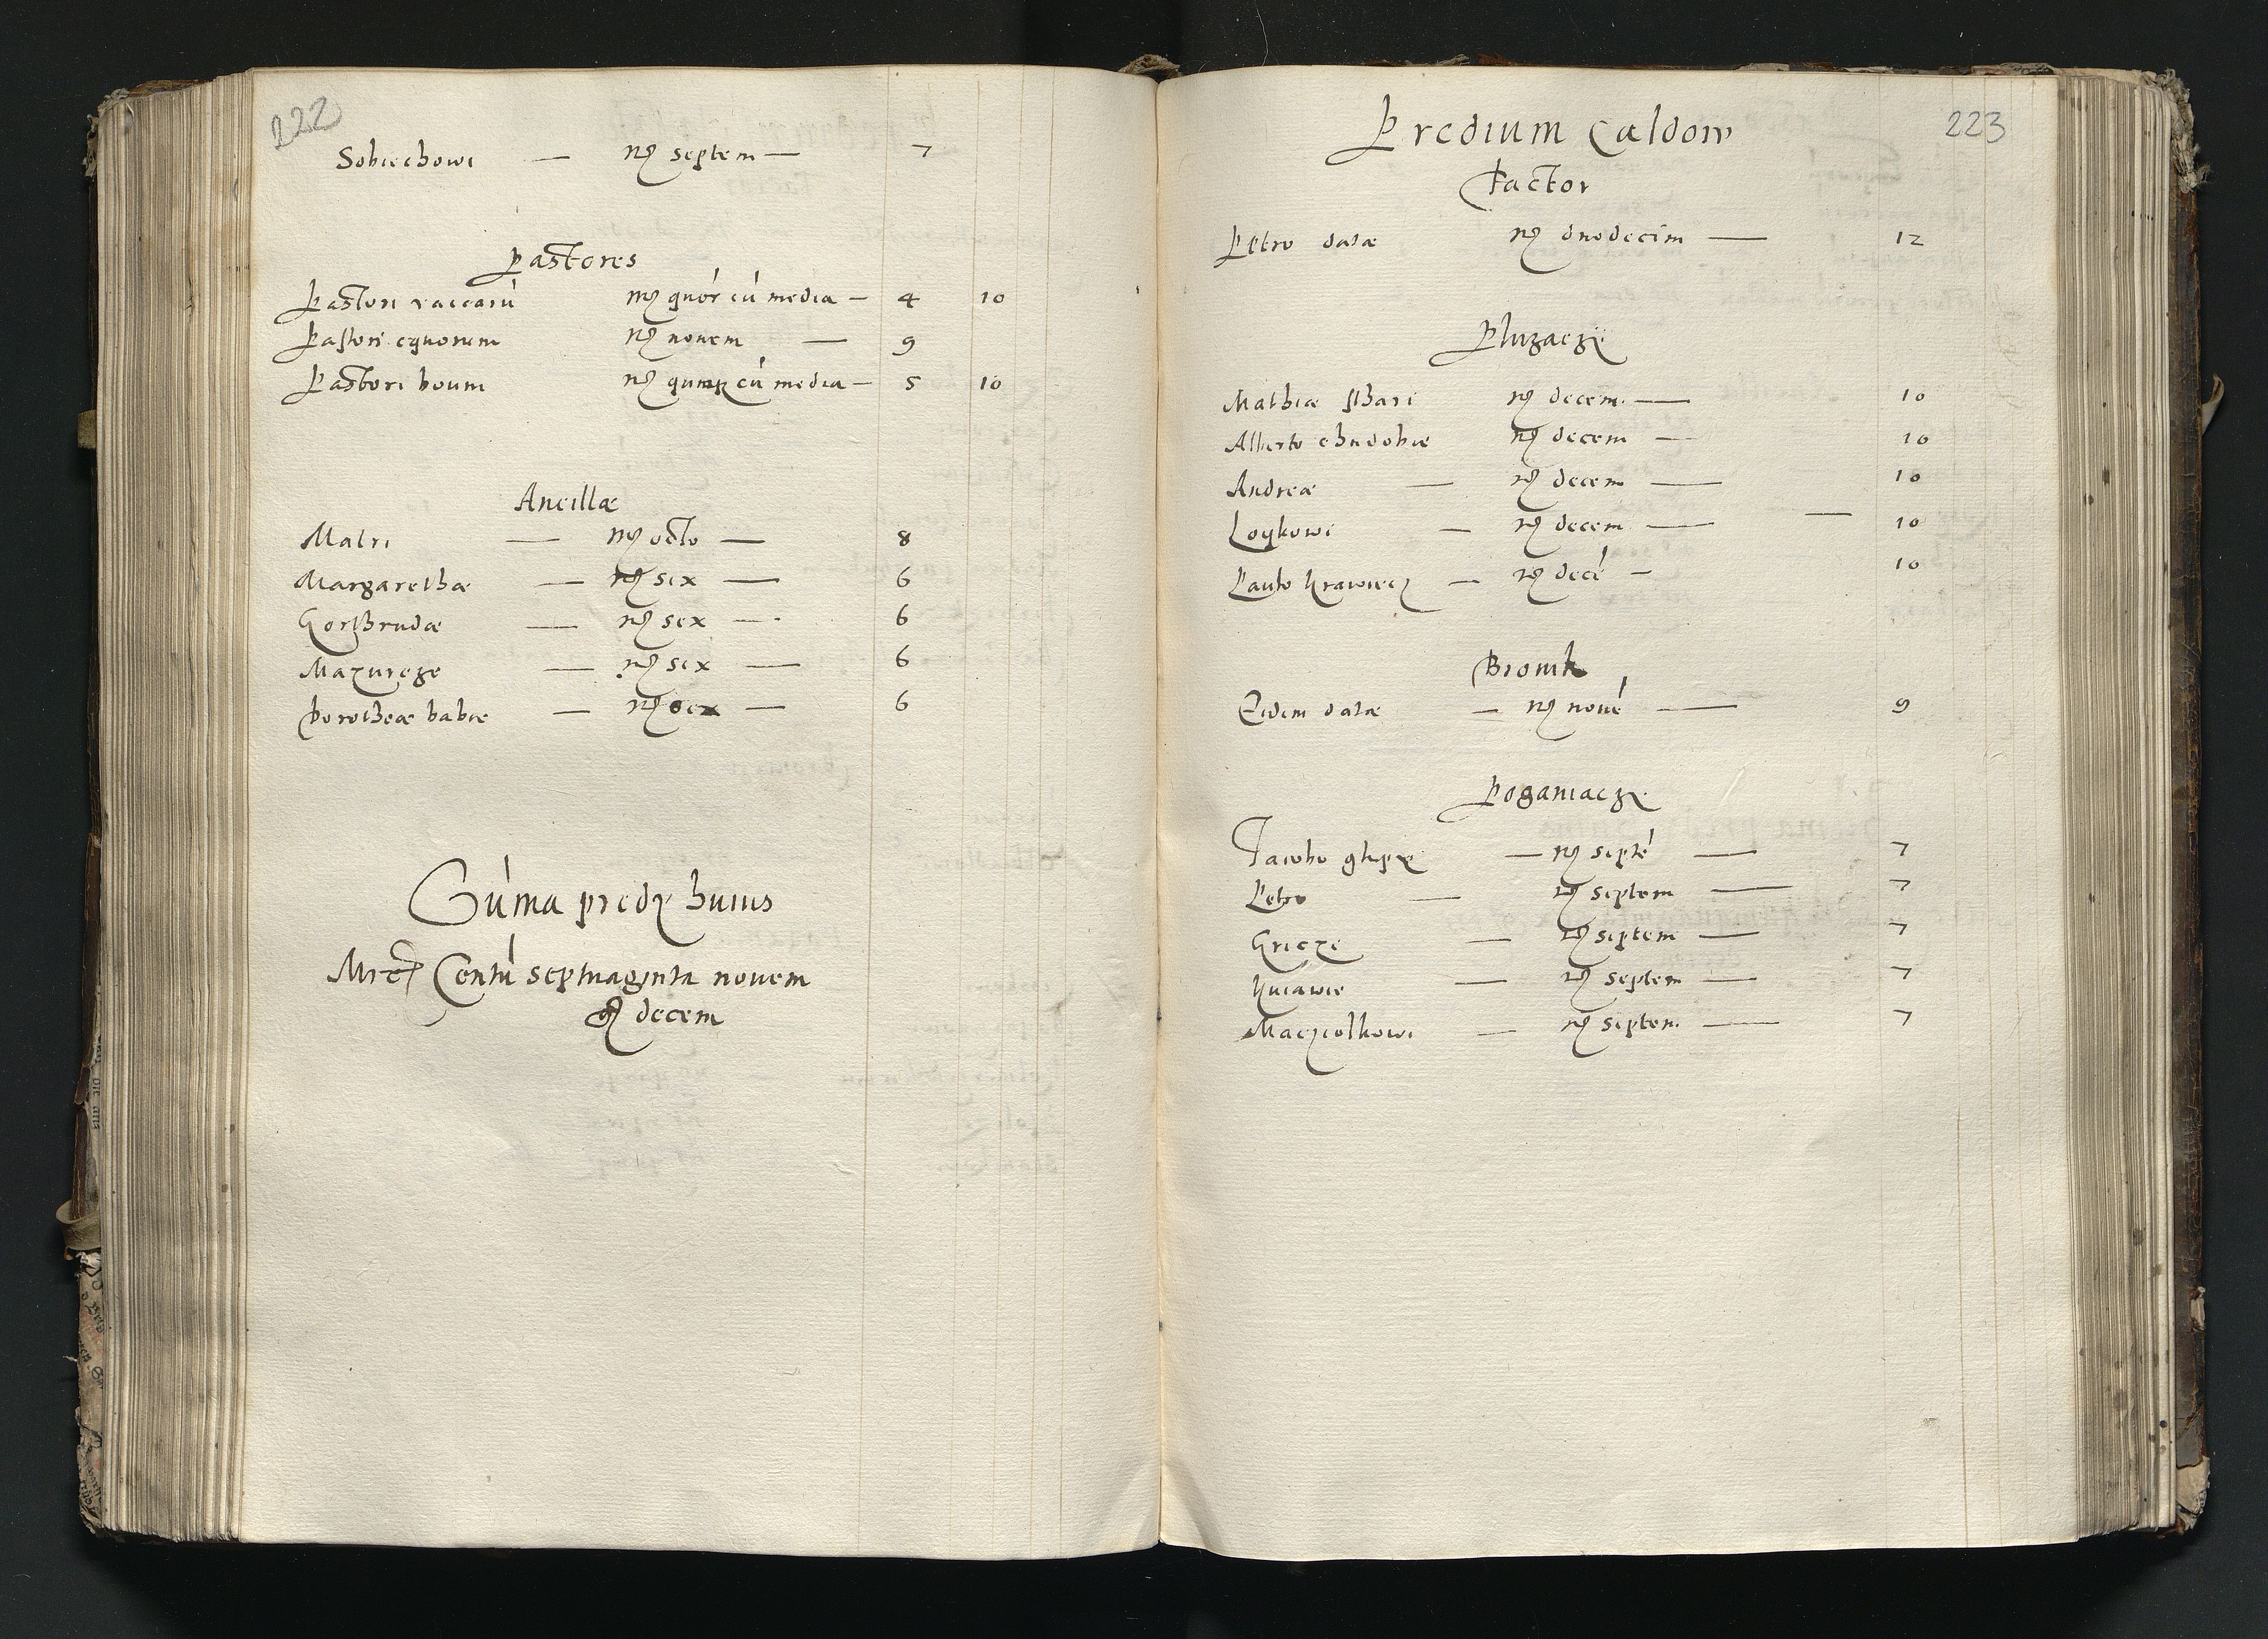 222
Sobiechowi — mꝝ septem — 7
Pastores
Pastori vaccarū mꝝ quór cū media — 4 10
Pastori equorum mꝝ novem — 9
Pastori boum mꝝ quinqꝫ cū media — 5 10
Ancillæ
Matri — mꝝ octo — 8
Margarethæ — mꝝ sex — 6
Gorthrudæ — mꝝ sex — 6
Mazurcze — mꝝ sex — 6
Dorotheæ babie — mꝝ sex — 6
Súma predy huius
Mrc Centū septuaginta novem
gꝝ decem
223
Predium Caldow
Factor
Petro datæ mꝝ duodecim — 12
Pluzacze
Mathiæ sthari mꝝ decem — 10
Alberto chudobie mꝝ decem — 10
Andreæ — mꝝ decem — 10
Loykowi — mꝝ decem — 10
Paulo Krawiecz — mꝝ decē — 10
Bronik
Eidem datæ — mꝝ novē — 9
Poganiacze
Jacobo glupie — mꝝ septē — 7
Petro — mꝝ septem — 7
Gricze — mꝝ septem — 7
Kuiawie — mꝝ septem — 7
Macziolkowi — mꝝ septem — 7